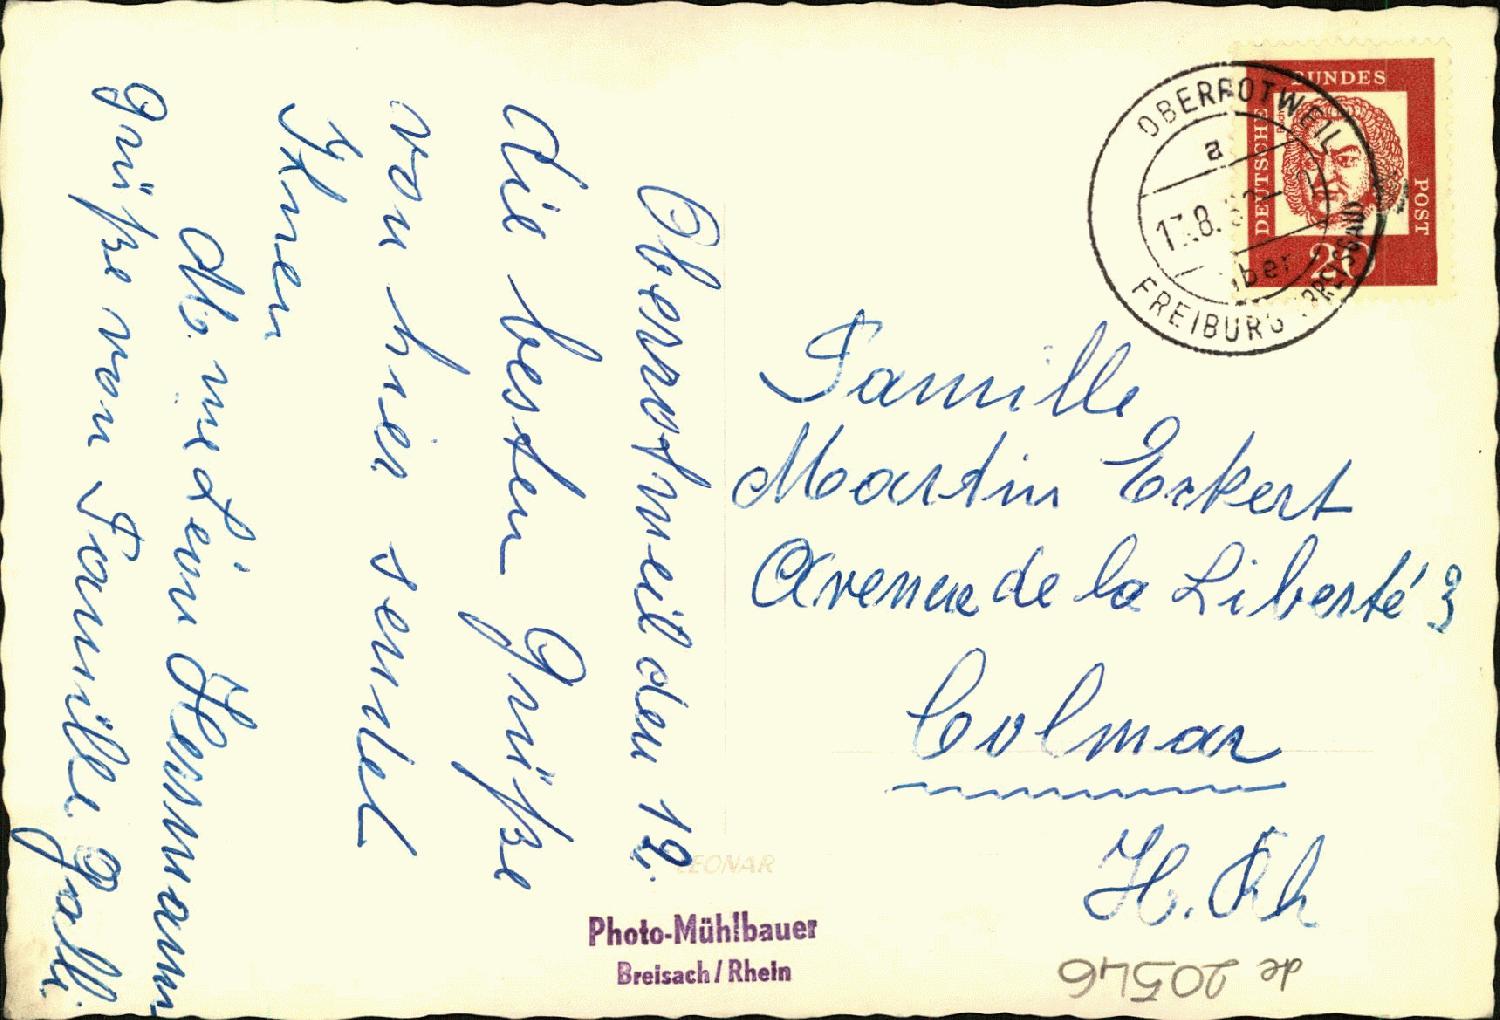 Oberrotweil den 12.
die besten Grüße
von hier sendet
Ihnen
Grüße von Familie Galli.
Familie
Martin Eckert
Avenue de la Liberté 3
Colmar
H. Rh
DEUTSCHE BUNDES POST
20
OBERROTWEIL
a
17.8.
über
FREIBURG (BREISGAU)
LEONAR
Photo-Mühlbauer
Breisach/Rhein
de 20546